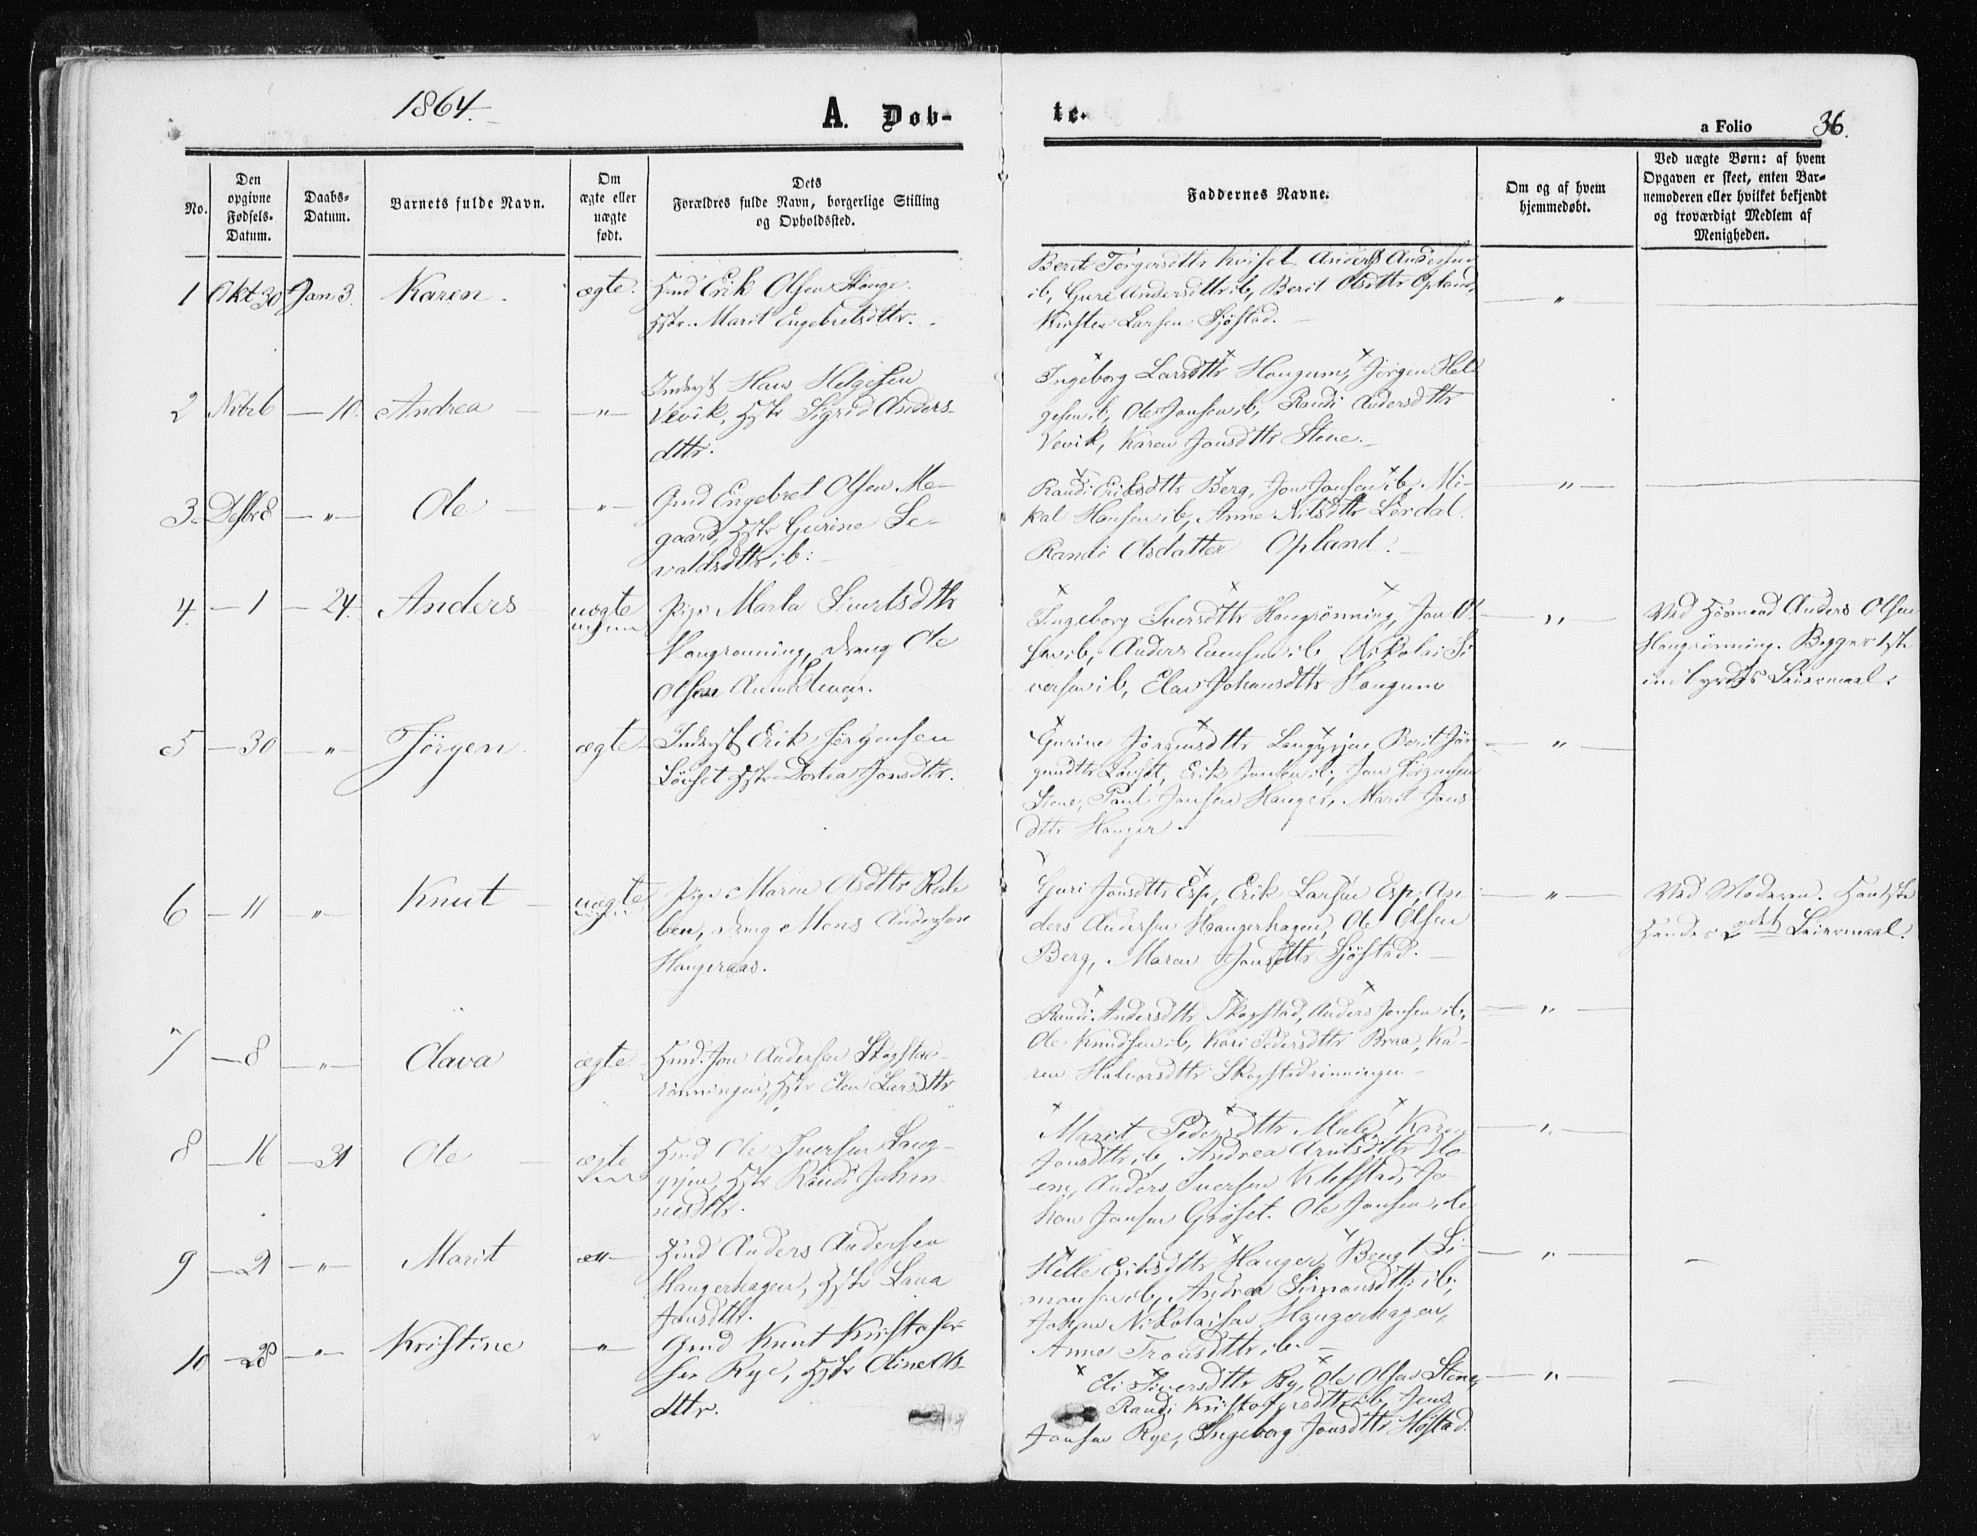 1864.
A. Dob-
te.
a Folio 36.
No.
Den opgivne Fødsels-Datum.
Daabs-Datum.
Barnets fulde Navn.
Om ægte eller uægte født.
Dets Forældres fulde Navn, borgerlige Stilling og Opholdssted.
Faddernes Navne.
Om og af hvem hjemmedøbt.
Ved uægte Børn: af hvem Opgaven er skeet, enten Barnemoderen eller hvilket bekjendt og troværdigt Medlem af Menigheden.
1 Okt 30 Jan 3. Karen. ægte.
Hmd Erik Olsen
Hstr. Marit Engebretsdttr.
Anders Andersen
ib, Guri Andersdttr ib, Berit Olsdttr Opland,
Kirsten Larsen Sjøstad.
2 Nvbr 6 — 10. Andrea — „ —
Inderst Hans Helgesen
Vevik, Hstr Sigrid Anders-
dttr.
Ingeborg Larsdttr Haugum, Jørgen Hel
gesen ib, Ole Jonsen ib, Randi Andersdttr
Vevik, Karen Jonsdttr Stene.
3. Dsbr 8 — „ — Ole — „ —
Gmd Engebret Olsen Me-
gaard, Hstr Gurine Se-
valdsdttr ib:
Randi Eriksdttr Berg, Jon Jonsen ib, Mi-
kal Hansen ib, Anne Nilsdttr Lørdal.
Randi Olsdatter Opland.
4. — 1 — 24. Anders uægte
Pige Marta Sivertsdttr
Haugrønning, Dreng Ole
Olsen
Ingeborg Iversdttr Haugrønning, Jon Ol
sen ib, Anders Evensen ib, Nikolai Si
versen ib, Johansdttr Haugum
Ved Husmand Anders Olsen
Haugrønning. Begges 1ste
indbyrdes Leiermaal.
5 — 30 „ Jörgen. ægte
Inderst Erik Jörgensen
Lövset Hstr Dortea Jonsdttr.
Gurine Jörgensdttr Langgjen, Berit Jör
gensdttr Løvset, Erik Jonsen ib, Jon Jørgensen
Stene, Paul Jonsen Hauger, Marit Jons
dttr Hauger.
6 — 11 „ Knut uægte
Pige Maren Olsdttr
Dreng Mons Andersen
Haugeraas.
Guri Jonsdttr Esp, Erik Larsen Esp, An
ders Andersen Haugerhagen, Ole Olsen
Berg, Maren Jonsdttr Sjøstad.
Ved Moderen.
Hendes 2det Leiermaal.
7 — 8 — „ — Olava ægte
Hmd. Jon Andersen Skogstad-
rønningen, Hstr Larsdttr
Randi Andersdttr Skogstad, Anders Jonsen ib,
Ole Knudsen ib, Kari Pedersdttr Braa, Ka-
ren Halvorsdttr Skogstadrønningen
8 — 16 — 31 Ole — ægte
Hmd Ole Iversen Lang-
gjen, Hstr Randi Johan-
nesdttr.
Marit Pedersdttr Karen
Jonsdttr ib, Andrea Arntsdttr Mo-
em, Anders Iversen Kleffstad, Jo-
han Jonsen Grøset. Ole Jonsen, ib
9 — 21 — „ — Marit
Hmd Anders Andersen
Haugerhagen, Hstr Lava
Jonsdttr.
Helle Eriksdttr Hauger, Bengt Si-
monsen ib, Andrea Simonsdttr ib,
Johan Nikolaisen Haugerhagen,
Anne Tronsdttr ib.
10 — 28 — „ — Kristine — „ —
Gmd Knut Kristofer-
sen Rye, Hstr Oline Ols-
dttr.
Eli Siversdttr Ry, Ole Olsen Stene,
Randi Kristofersdttr ib, Jens
Jonsen Rye, Ingeborg Jonsdttr Høstad.